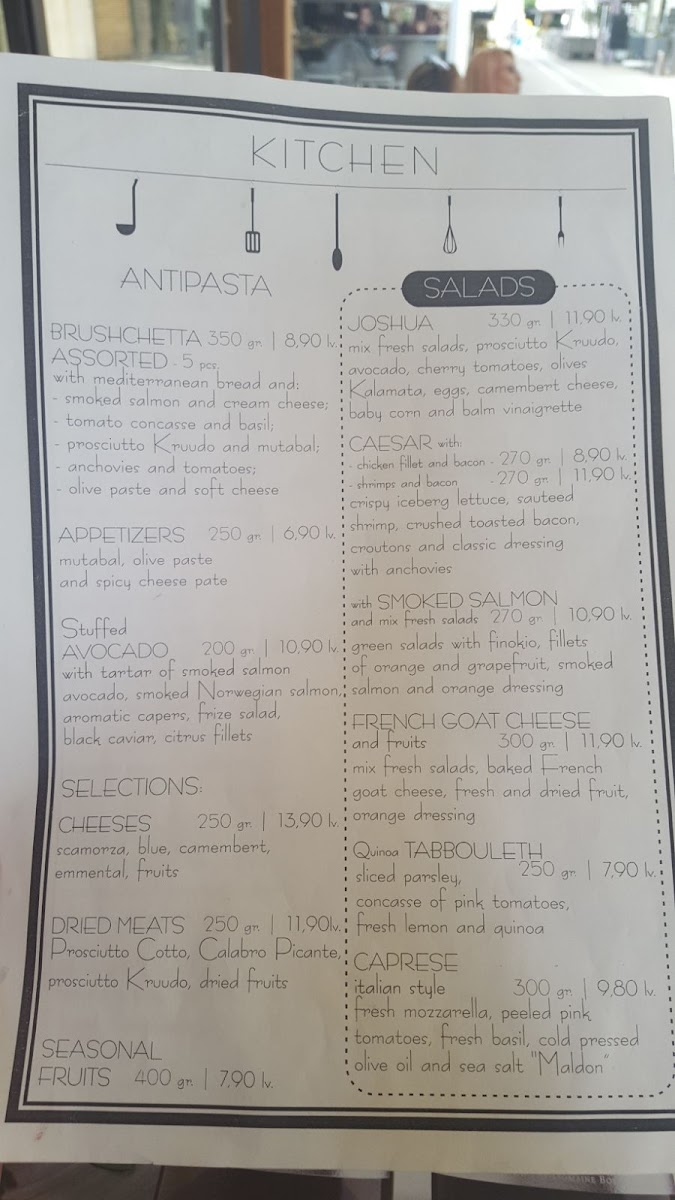 KITCHEN
ANTIPASTA
BRUSHCHETTA 350 gr. | 8,90 lv.
ASSORTED - 5 pcs.
with mediterranean bread and:
- smoked salmon and cream cheese;
- tomato concasse and basil;
- prosciutto Kruudo and mutabal;
- anchovies and tomatoes;
- olive paste and soft cheese
APPETIZERS 250 gr. | 6,90 lv.
mutabal, olive paste
and spicy cheese pate
Stuffed
AVOCADO 200 gr. | 10,90 lv.
with tartar of smoked salmon
avocado, smoked Norwegian salmon,
aromatic capers, frize salad,
black caviar, citrus fillets
SELECTIONS:
CHEESES 250 gr. | 13,90 lv.
scamorza, blue, camembert,
emmental, fruits
DRIED MEATS 250 gr. | 11,90lv.
Prosciutto Cotto, Calabro Picante,
prosciutto Kruudo, dried fruits
SEASONAL
FRUITS 400 gr. | 7,90 lv.
SALADS
JOSHUA 330 gr. | 11,90 lv.
mix fresh salads, prosciutto Kruudo,
avocado, cherry tomatoes, olives
Kalamata, eggs, camembert cheese,
baby corn and balm vinaigrette
CAESAR with:
- chicken fillet and bacon - 270 gr. | 8,90 lv.
- shrimps and bacon - 270 gr. | 11,90 lv.
crispy iceberg lettuce, sauteed
shrimp, crushed toasted bacon,
croutons and classic dressing
with anchovies
with SMOKED SALMON
and mix fresh salads 270 gr. | 10,90 lv.
green salads with finokio, fillets
of orange and grapefruit, smoked
salmon and orange dressing
FRENCH GOAT CHEESE
and fruits 300 gr. | 11,90 lv.
mix fresh salads, baked French
goat cheese, fresh and dried fruit,
orange dressing
Quinoa TABBOULETH
250 gr. | 7,90 lv.
sliced parsley,
concasse of pink tomatoes,
fresh lemon and quinoa
CAPRESE
italian style 300 gr. | 9,80 lv.
fresh mozzarella, peeled pink
tomatoes, fresh basil, cold pressed
olive oil and sea salt "Maldon"